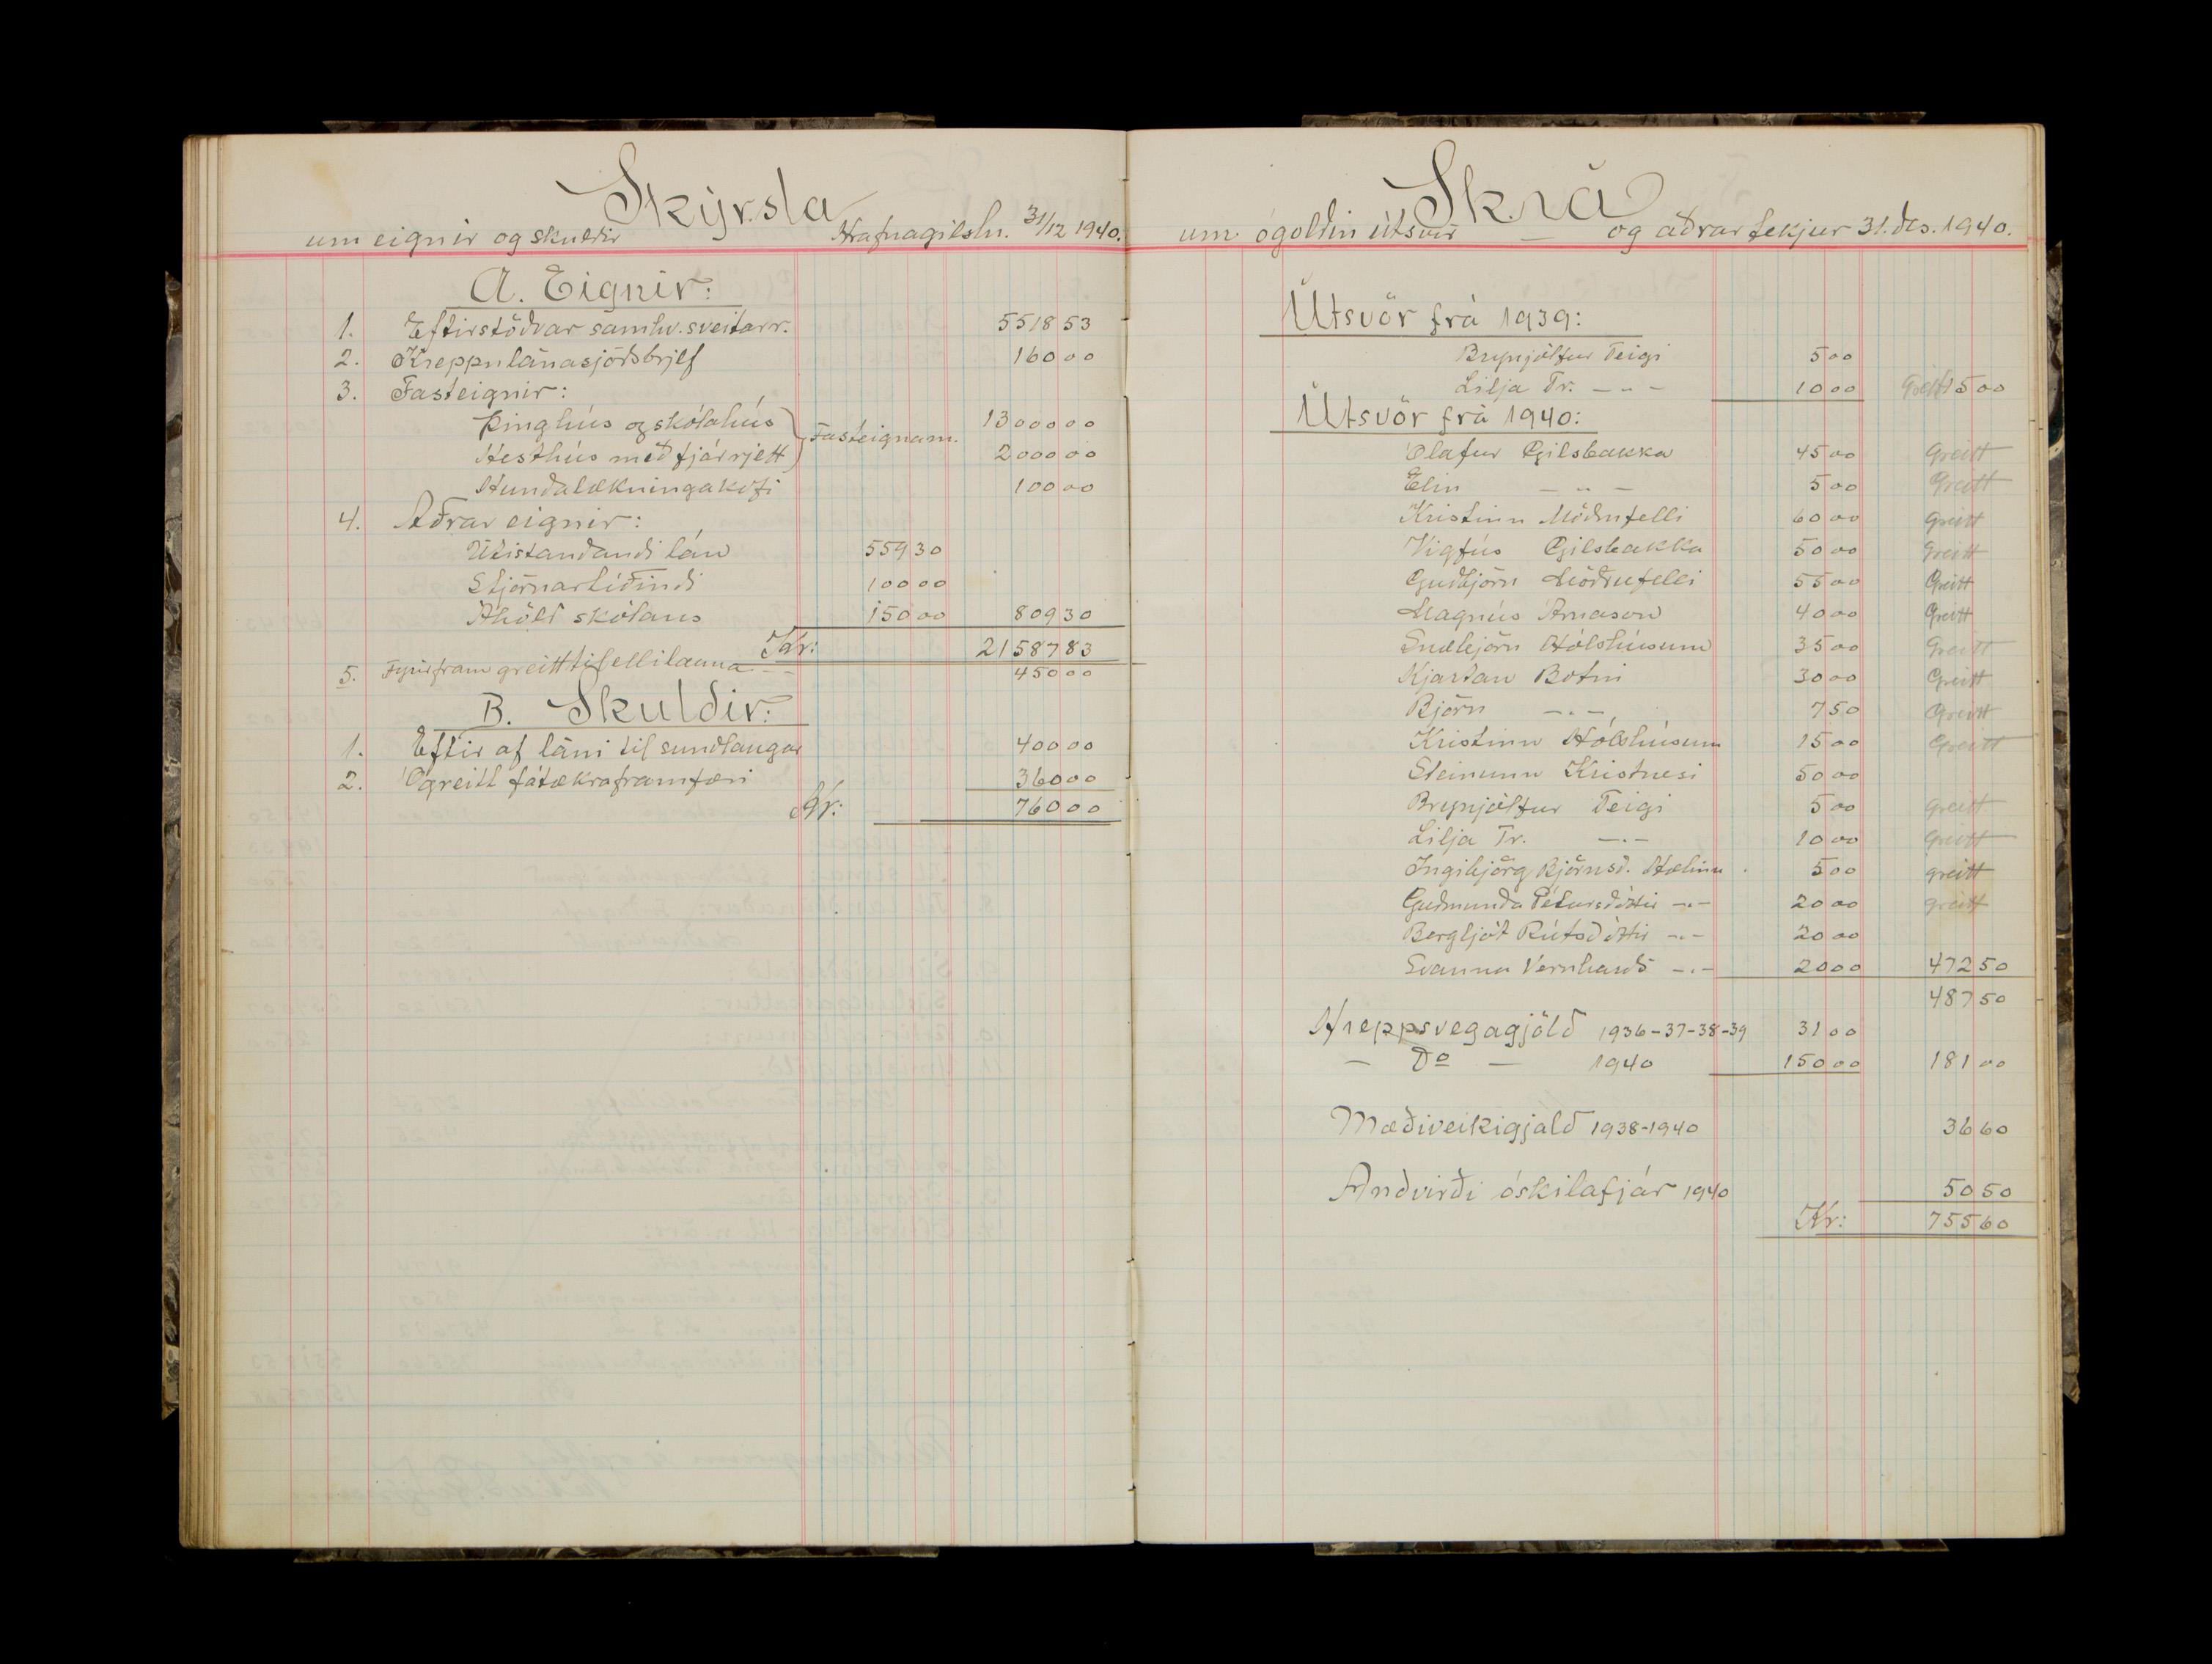 Skýrsla
um eignir og skuldir Hrafnagilshr. 31/12 1940.
A. Eignir:
1. Eftirstöðvar samhv. sveitarr. 5518 53
2. Kreppulánasjóðsbrjef 160 00
3. Fasteignir:
Þinghús og skólahús 13000 00
Fasteignam.
Hesthús með fjárrjett 2000 00
Hundalækningakofi 100 00
4. Aðrar eignir:
Útistandandi lán 559 30
Stjórnartíðindi 100 00
Áhöld skólans 150 00 809 30
Kr: 21587 83
5. Fyrirfram greitt til ellilauna 450 00
B. Skuldir:
1. Eftir af láni til sundlaugar 400 00
2. Ógreitt fátækraframfæri 360 00
Kr: 760 00
Skrá
um ógoldin útsvör og aðrar tekjur 31. des. 1940.
Útsvör frá 1939:
Brynjólfur Teigi 5 00
Lilja Tr. — „ — 10 00 Greitt 15 00
Útsvör frá 1940:
Ólafur Gilsbakka 45 00 Greitt
Elín — „ — 5 00 Greitt
Kristinn Möðrufelli 60 00 Greitt
Vigfús Gilsbakka 50 00 Greitt
Guðbjörn Möðrufelli 55 00 Greitt
Magnús Árnason 40 00 Greitt
Snæbjörn Hólshúsum 35 00 Greitt
Kjartan Botni 30 00 Greitt
Björn — „ — 7 50 Greitt
Kristinn Hólshúsum 15 00 Greitt
Steinunn Kristnesi 50 00
Brynjólfur Teigi 5 00 Greitt
Lilja Tr. — „ — 10 00 Greitt
Ingibjörg Björnsd. Hælinu 5 00 greitt
Guðmunda Pétursdóttir — „ — 20 00 greitt
Bergljót Rútsdóttir — „ — 20 00
Svanna Vernharðs — „ — 20 00 472 50
487 50
Hreppsvegagjöld 1936-37-38-39 31 00
— Do — 1940 150 00 181 00
Mæðiveikigjald 1938-1940 36 60
Andvirði óskilafjár 1940 50 50
Kr: 755 60